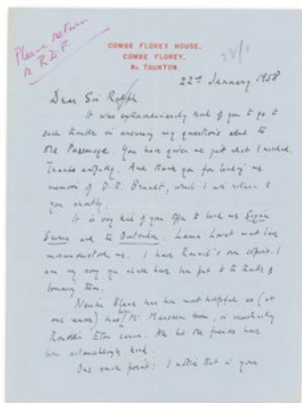 Please return
to R.D.F.
COMBE FLOREY HOUSE,
COMBE FLOREY,
Nr. TAUNTON.
22nd January 1958
Dear Sir Ralph
It was extraordinarily kind of you to go to
such trouble in answering my questions about the
Old Passage. You have given me just what I needed.
Thanks awfully. And thank you for lending me
memoir of D. R. Brandt, which I will return to
you shortly.
It is very kind of you offer to lend me
and the Outsider. Laura must have
misunderstood me. I have Ronald's own copies. I
am very you should have been put to the trouble of
them.
has been most helpful as (at
one remove) has Mr. Marsden
Ronald's Eton career. All his old friends have
been astonishingly kind.
One small point: I notice that in your